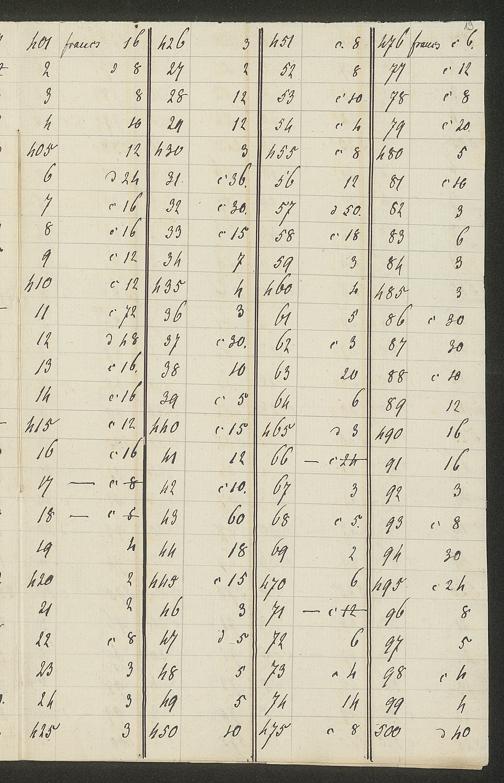 19
401 francs 16
2 d 8
3 8
4 10
405 12
6 d 24
7 c 16
8 c 16
9 c 12
410 c 12
11 c 72
12 d 48
13 c 16
14 c 16
415 c 12
16 c 16
17 — c 8
18 — c 8
19 4
420 2
21 2
22 c 8
23 3
24 3
425 3
426 3
27 2
28 12
29 12
430 3
31 c 36.
32 c 30.
33 c 15
34 7
435 4
36 3
37 c 30.
38 10
39 c 5
440 c 15
41 12
42 c 10.
43 60
44 18
445 c 15
46 3
47 d 5
48 5
49 5
450 10
451 c. 8
52 8
53 c 10
54 c 4
455 c 8
56 12
57 d 50.
58 c 18
59 3
460 4
61 5
62 c 3
63 20
64 6
465 d 3
66 — c 24
67 3
68 c 5.
69 2
470 6
71 — c 12
72 6
73 c 4
74 14
475 c 8
476 francs c 6.
77 c 12
78 c 8
79 c 20
480 5
81 c 10
82 3
83 6
84 3
485 3
86 c 30
87 30
88 c 10
89 12
490 16
91 16
92 3
93 c 8
94 30
495 c 24
96 8
97 5
98 c 4
99 4
500 d 40